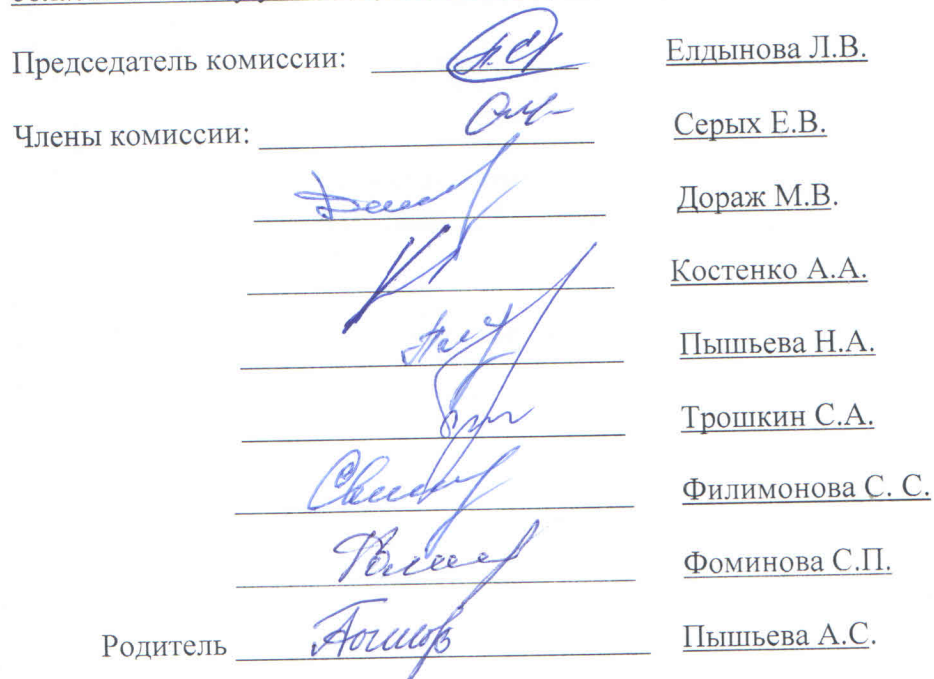 Председатель комиссии: Елдынова Л.В.
Члены комиссии: Серых Е.В.
Дораж М.В.
Костенко А.А.
Пышьева Н.А.
Трошкин С.А.
Филимонова С. С.
Фоминова С.П.
Родитель Пышьева А.С.